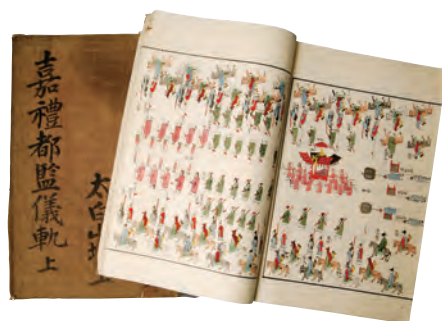 嘉禮都監儀軌 上
太白山